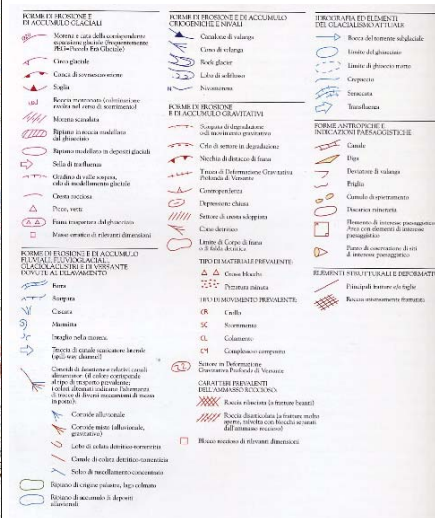 FORME DI EROSIONE E
DI ACCUMULO GLACIALI
Morena e data della corrispondente
PEG= Piccola Età Glaciale)
Circo glaciale
Conca di sovraescavazione
Soglia
Roccia montonata
Morena scanalata
Ripiano in roccia modellata
dal ghiacciaio
Ripiano modellato in depositi glaciali
Sella di trasfluenza
Gradino di valle sospesa,
orlo di modellamento glaciale
Cresta rocciosa
Picco, vetta
Fauna trasportata dal ghiacciaio
Masso erratico di rilevanti dimensioni
FORME DI EROSIONE E DI ACCUMULO
FLUVIALI, FLUVIOGLACIALI,
GLACIOLACUSTRI E DI VERSANTE
DOVUTE AL DILAVAMENTO
Forra
Scarpata
Cascata
Marmitta
Intaglio nella morena
Traccia di canale scaricatore laterale
(spill way channel)
Conoide alluvionale
Conoide misto (alluvionale,
gravitativo)
Lobo di colata detritico-torrentizia
Canale di colata detritico-torrentizia
Solco di ruscellamento concentrato
Ripiano di origine palustre, lago colmato
Ripiano di accumulo di depositi
alluvionali
FORME DI EROSIONE E DI ACCUMULO
CRIOGENICHE E NIVALI
Canalone di valanga
Cono di valanga
Rock glacier
Lobo di soliflusso
Nivomorena
FORME DI EROSIONE
E DI ACCUMULO GRAVITATIVI
Scarpata di degradazione
o di movimento gravitativo
Orlo di settore in degradazione
Nicchia di distacco di frana
Trincea di Deformazione Gravitativa
Profonda di Versante
Contropendenza
Depressione chiusa
Settore di cresta sdoppiata
Cono detritico
Limite di Corpo di frana
o di falda detritica
TIPO DI MATERIALE PREVALENTE:
Grossi blocchi
Pezzatura minuta
TIPO DI MOVIMENTO PREVALENTE:
CR Crollo
SC Scorrimento
CL Colamento
CM Complesso o composito
Settore in Deformazione
Gravitativa Profonda di Versante
CARATTERI PREVALENTI
DELL'AMMASSO ROCCIOSO:
Roccia rilasciata (a fratture beanti)
Roccia disarticolata (a fratture molto
aperte, talvolta con blocchi separati
dall'ammasso roccioso)
Blocco roccioso di rilevanti dimensioni
IDROGRAFIA ED ELEMENTI
DEL GLACIALISMO ATTUALE
Bocca del torrente subglaciale
Limite del ghiacciaio
Limite di ghiaccio morto
Crepaccio
Seraccata
Transfluenza
FORME ANTROPICHE E
INDICAZIONI PAESAGGISTICHE
Canale
Diga
Deviatore di valanga
Briglia
Cumulo di spietramento
Discarica mineraria
Elemento di interesse paesaggistico
Area con elementi di interesse
paesaggistico
Punto di osservazione di siti
di interesse paesaggistico
ELEMENTI STRUTTURALI E DEFORMATI
Principali fratture e/o faglie
Roccia intensamente fratturata